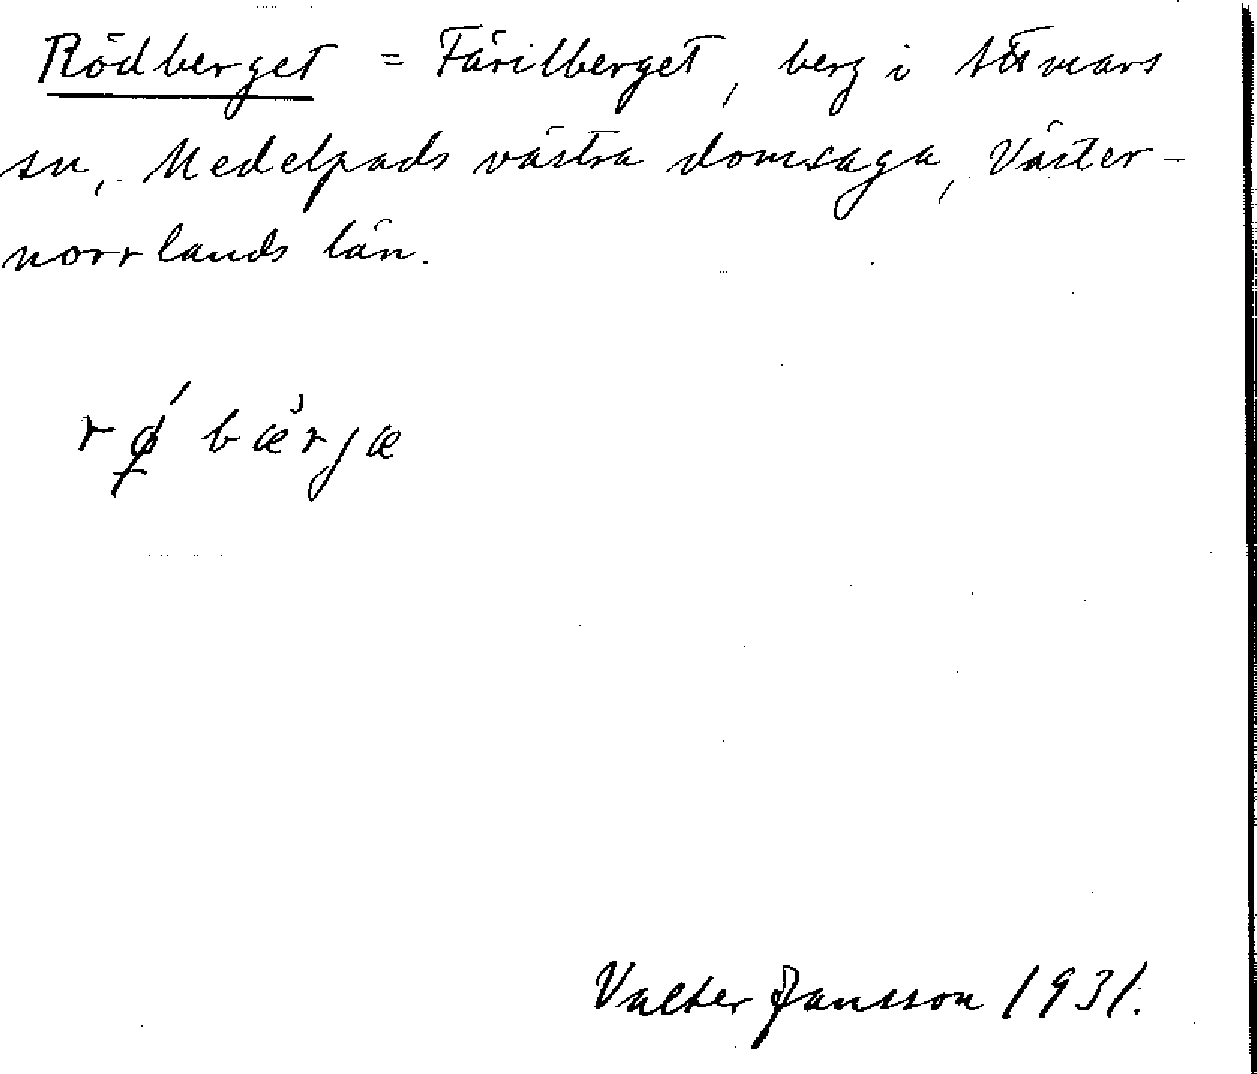 Rödberget = Färilberget, berg i Attmars
sn, Medelpads västra domsaga, Väster-
norrlands län.
rǿ bærjæ
Valter Jansson 1931.